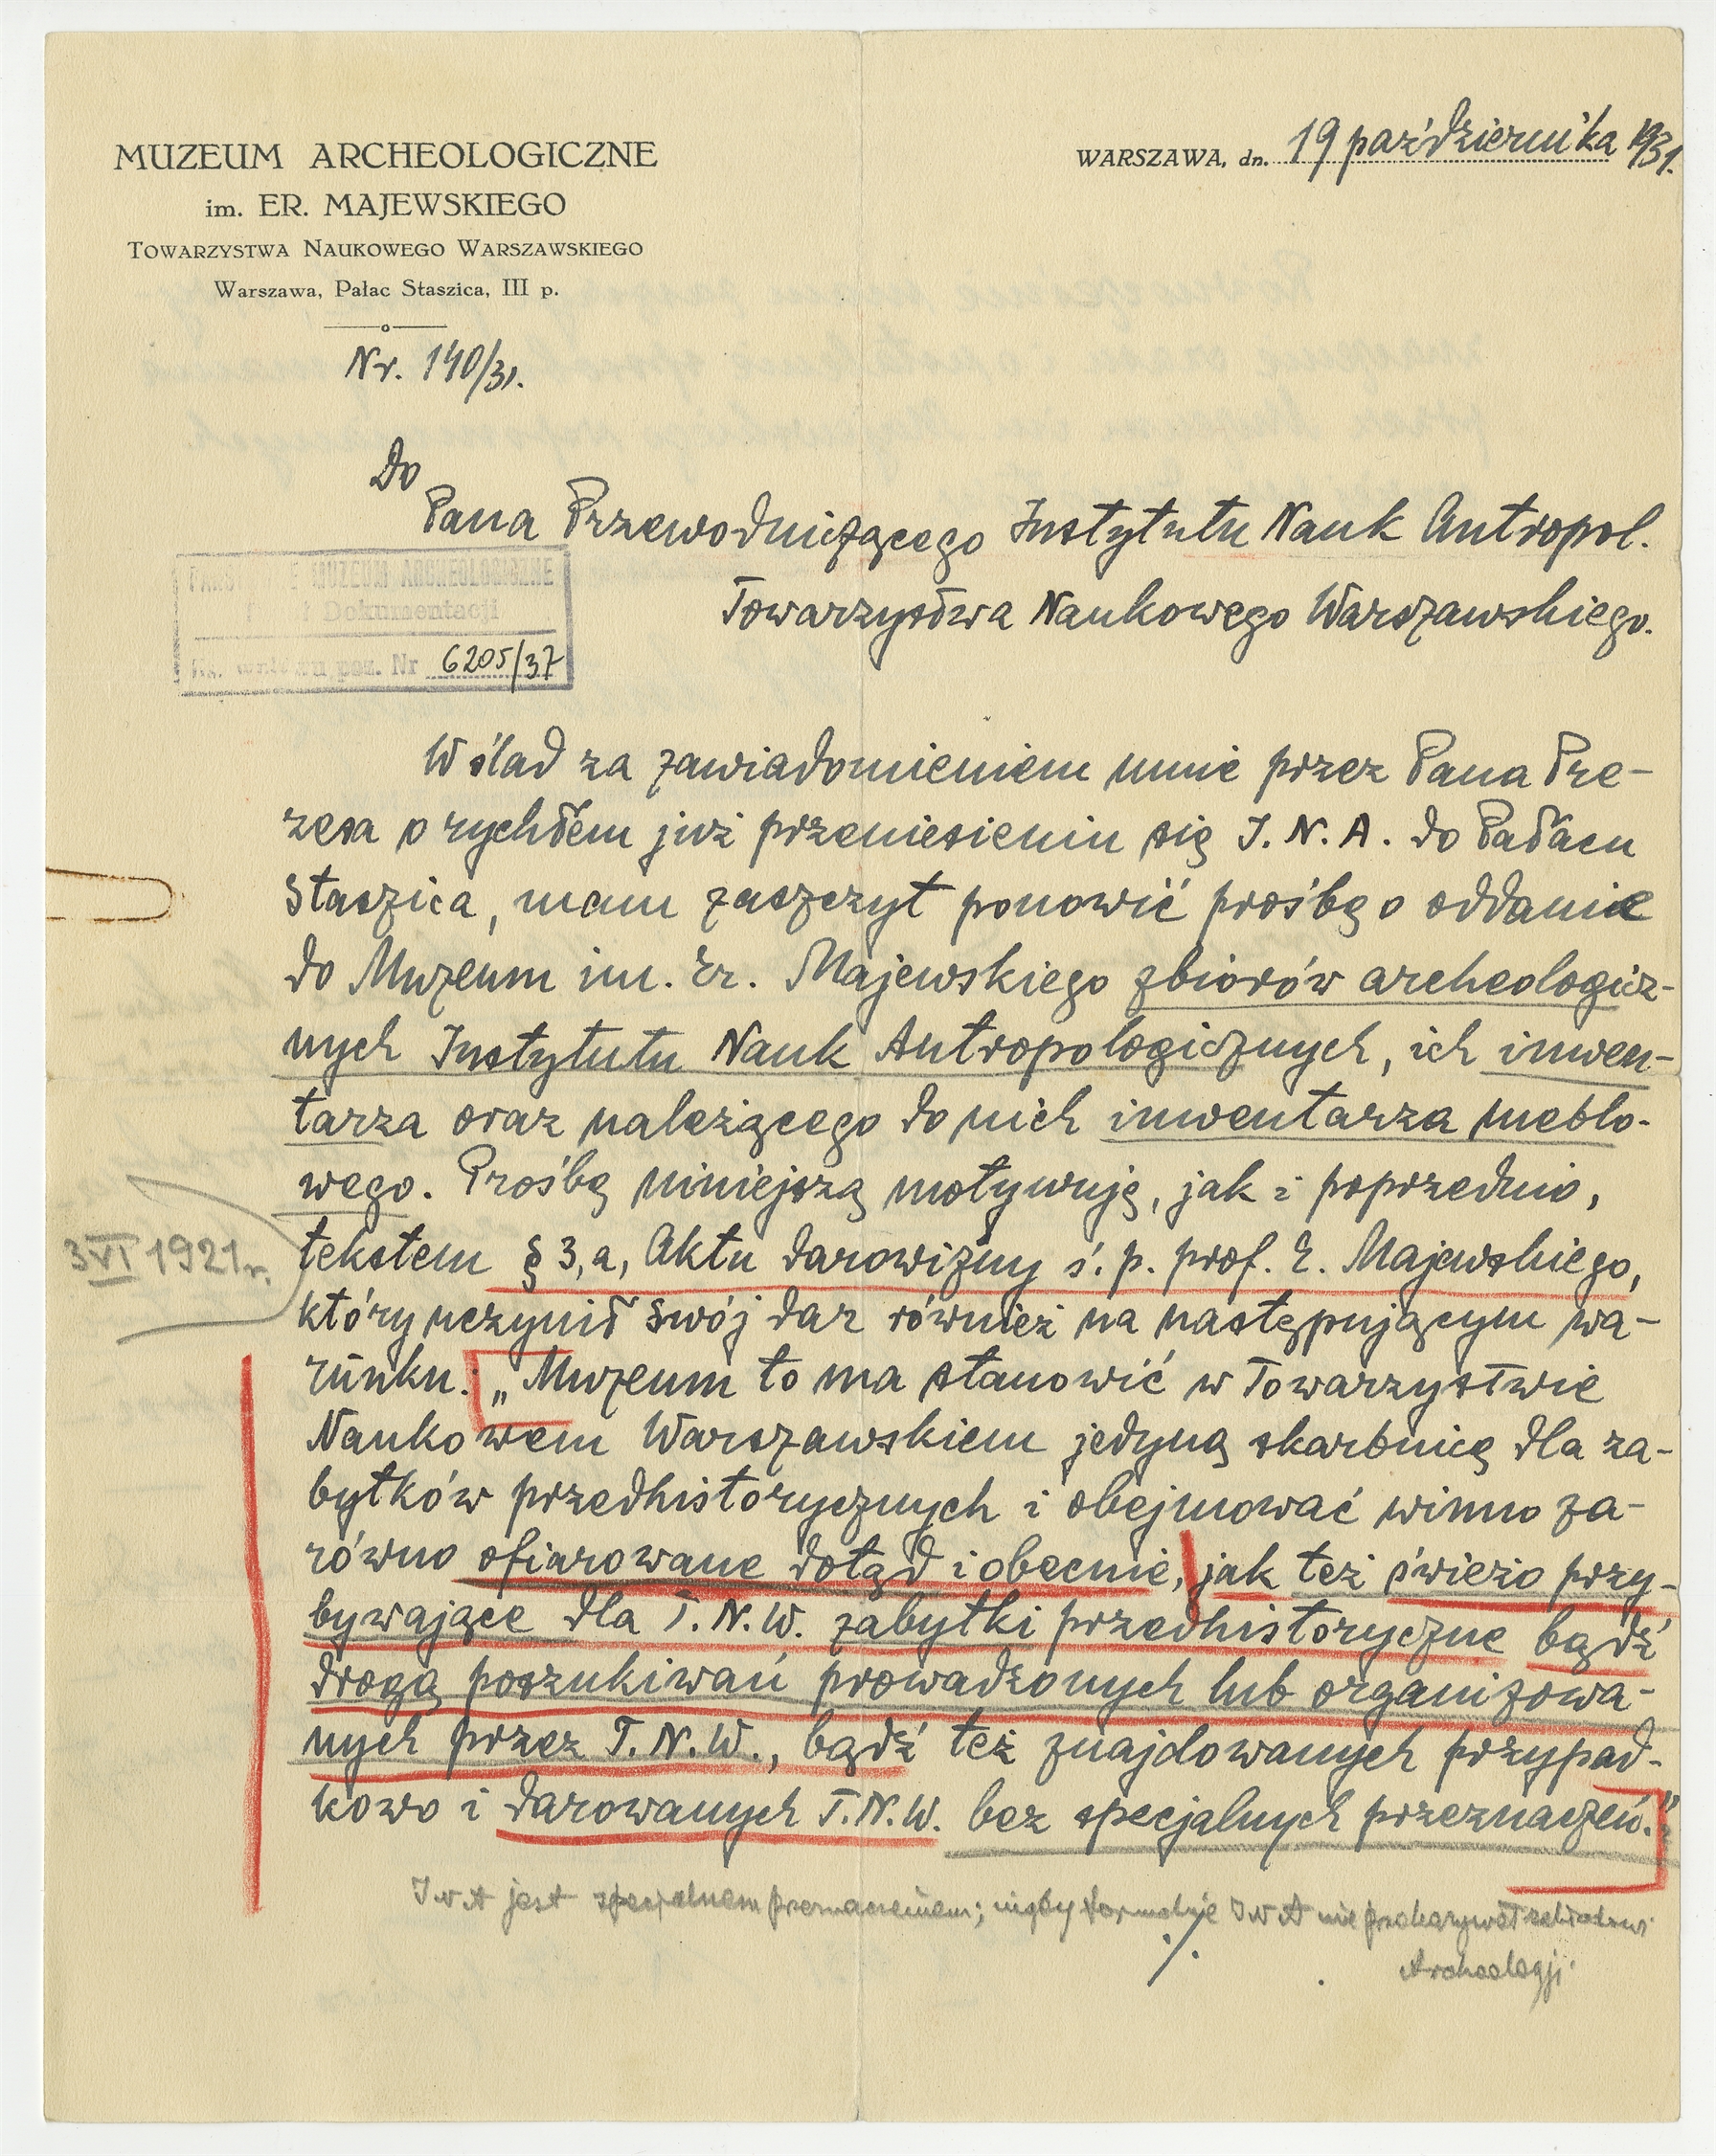 MUZEUM ARCHEOLOGICZNE
im. ER. MAJEWSKIEGO
TOWARZYSTWA NAUKOWEGO WARSZAWSKIEGO
Warszawa, Pałac Staszica, III p.
WARSZAWA, dn. 19 października 1931.
Nr. 140/31.
Do
Pana Przewodniczącego Instytutu Nauk Antropol.
Towarzystwa Naukowego Warszawskiego.
MUZEUM ARCHEOLOGICZNE
Dokumentacji
poz. Nr 6205/37
W ślad za zawiadomieniem mnie przez Pana Pre-
zesa o rychłem już przeniesieniu się I.N.A. do Pałacu
Staszica, mam zaszczyt ponowić prośbę o oddanie
do Muzeum im. Er. Majewskiego zbiorów archeologicz-
nych Instytutu Nauk Antropologicznych, ich inwen-
tarza oraz należącego do nich inwentarza meblo-
wego. Prośbę niniejszą motywuję, jak i poprzednio,
3 VI 1921 r.
tekstem § 3, a, Aktu darowizny ś. p. prof. E. Majewskiego,
który uczynił swój dar również na następującym wa-
runku: „Muzeum to ma stanowić w Towarzystwie
Naukowem Warszawskiem jedyną skarbnicę dla za-
bytków przedhistorycznych i obejmować winno za-
równo ofiarowane dotąd i obecnie, jak też świeżo przy-
bywające dla T.N.W. zabytki przedhistoryczne bądź
drogą poszukiwań prowadzonych lub organizowa-
nych przez T.N.W., bądź też znajdowanych przypad-
kowo i darowanych T.N.W. bez specjalnych przeznaczeń."
I N A jest specjalnem przeznaczeniem; nigdy formalnie I N A nie przekazywał zakładowi
Archeologji
./.